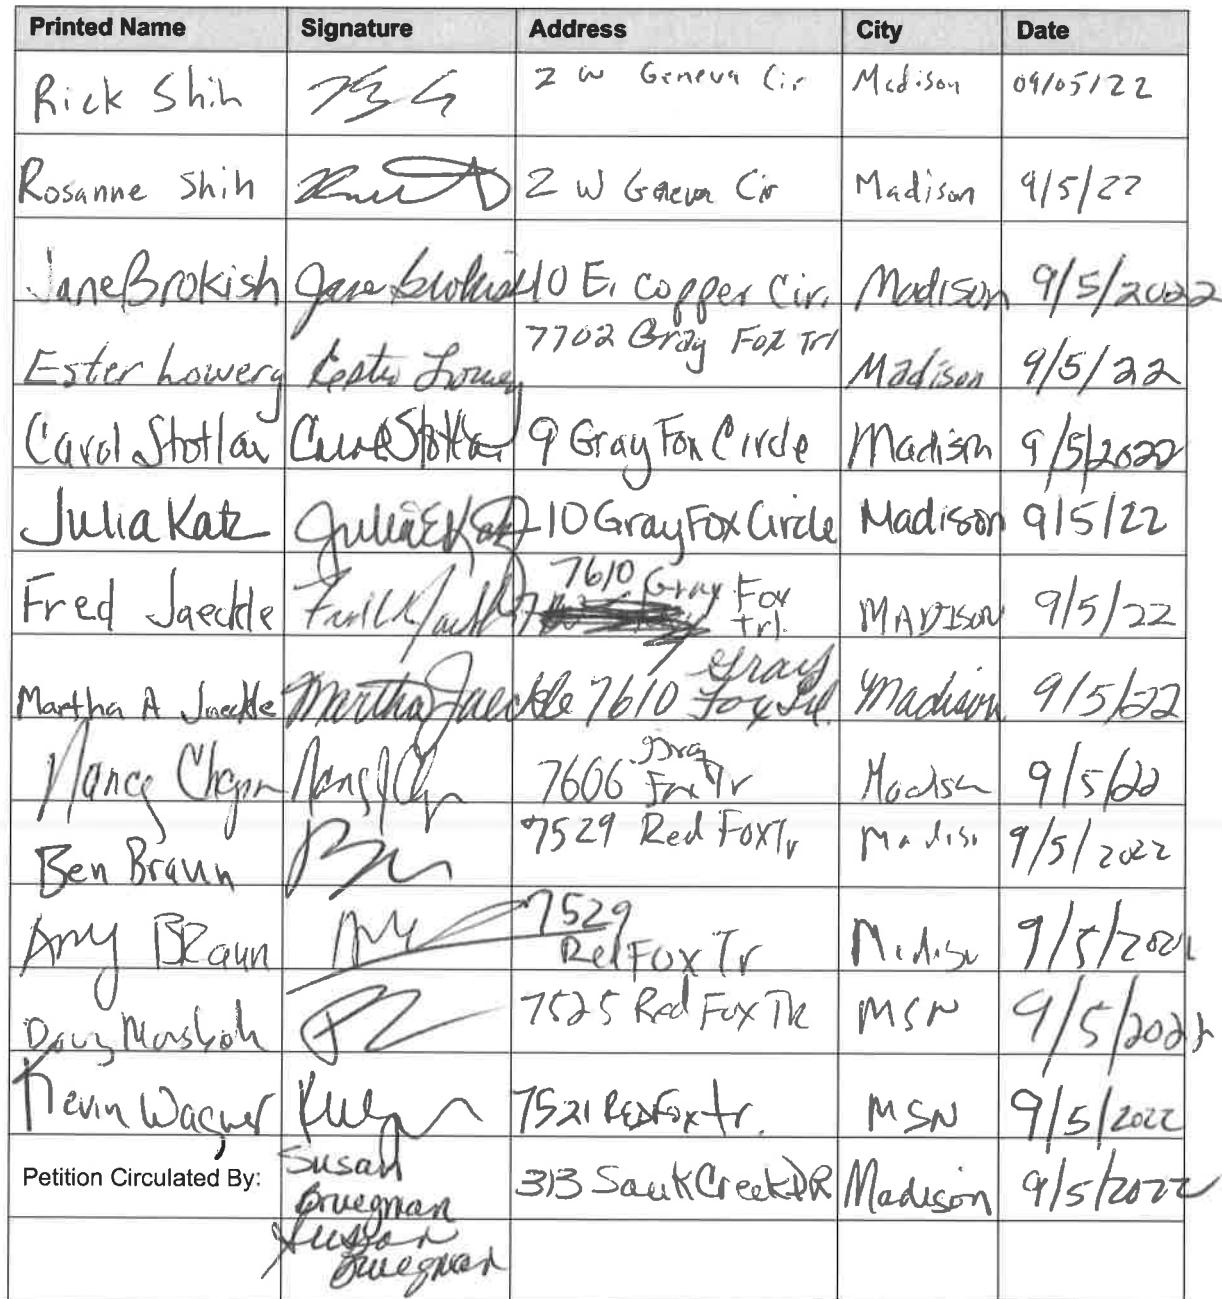 Printed Name Signature Address City Date
Rick Shih 2 W Geneva Cir Madison 09/05/22
Rosanne Shih 2 W Geneva Cir Madison 9/5/22
Jane Brokish Jane Brokish 10 E. Copper Cir. Madison 9/5/2022
Ester Lowery Ester Lowery 7702 Gray Fox Trl Madison 9/5/22
Carol Stotlar Carol Stotlar 9 Gray Fox Circle Madison 9/5/2022
Julia Katz Julia E Katz 10 Gray Fox Circle Madison 9/5/22
Fred Jaeckle 7610 Gray Fox Trl. MADISON 9/5/22
Martha A Jaeckle Martha Jaeckle 7610 Gray Fox Trl. Madison 9/5/22
Nancy 7606 Gray Fox Tr Madison 9/5/22
Ben Braun 7529 Red Fox Tr Madiso 9/5/2022
Amy BRaun 7529 Red Fox Tr 9/5/202
Doug 7525 Red Fox TR MSN 9/5/2022
Kevin Wagner 7521 Red Fox tr. MSN 9/5/2022
Petition Circulated By: Susan Bruegman 313 Sauk Creek DR Madison 9/5/2022
Susan Bruegman